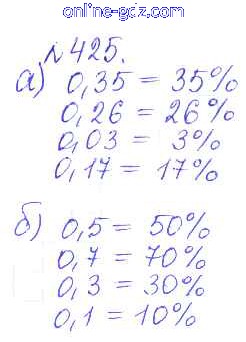 online-gdz.com
№425.
а) 0,35 = 35%
0,26 = 26%
0,03 = 3%
0,17 = 17%
б) 0,5 = 50%
0,7 = 70%
0,3 = 30%
0,1 = 10%